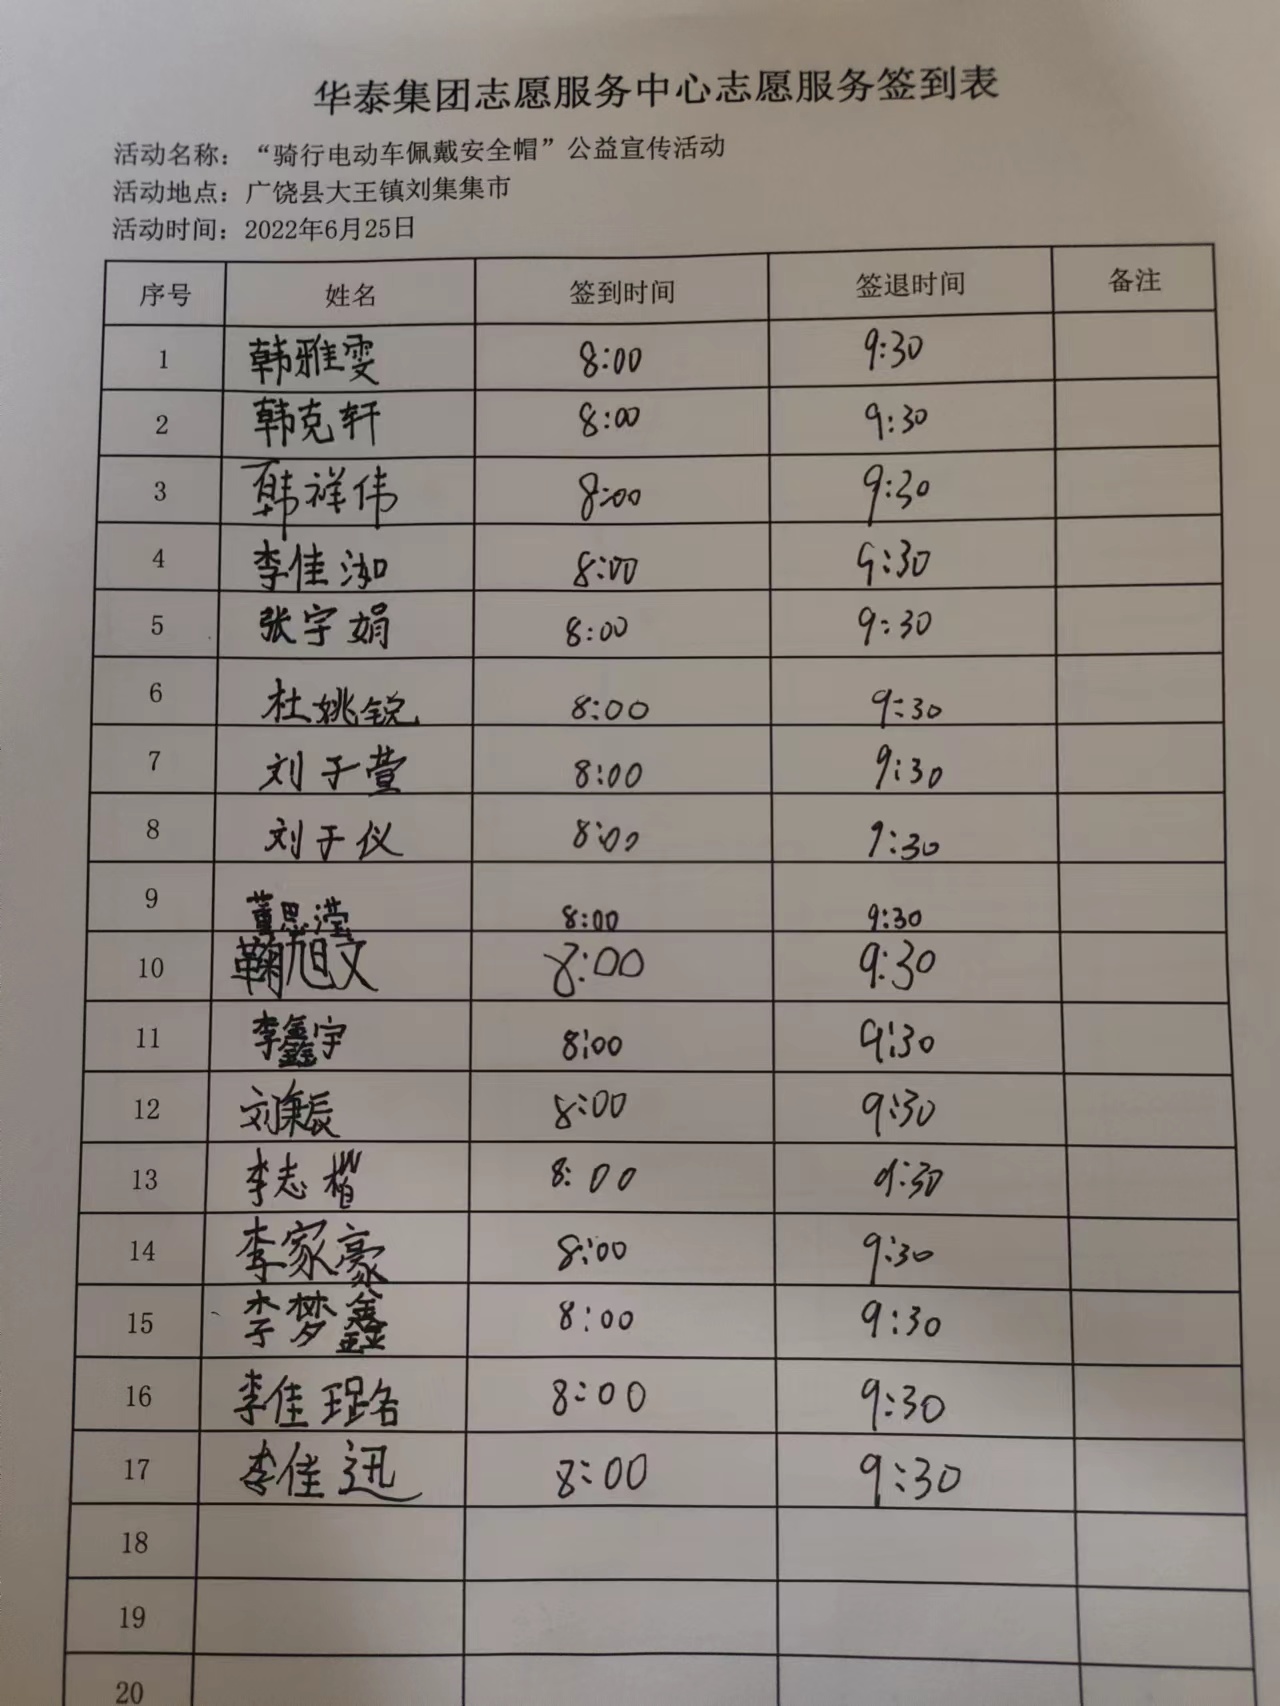 华泰集团志愿服务中心志愿服务签到表
活动名称：“骑行电动车佩戴安全帽”公益宣传活动
活动地点：广饶县大王镇刘集集市
活动时间：2022年6月25日
序号 姓名 签到时间 签退时间 备注
1 韩雅雯 8:00 9:30
2 韩克轩 8:00 9:30
3 韩祥伟 8:00 9:30
4 李佳泇 8:00 9:30
5 张宇娟 8:00 9:30
6 杜姚锐 8:00 9:30
7 刘于萱 8:00 9:30
8 刘于仪 8:00 9:30
9 董思滢 8:00 9:30
10 鞠旭文 8:00 9:30
11 李鑫宇 8:00 9:30
12 刘秉辰 8:00 9:30
13 李志楷 8:00 9:30
14 李家豪 8:00 9:30
15 李梦鑫 8:00 9:30
16 李佳 8:00 9:30
17 李佳迅 8:00 9:30
18
19
20